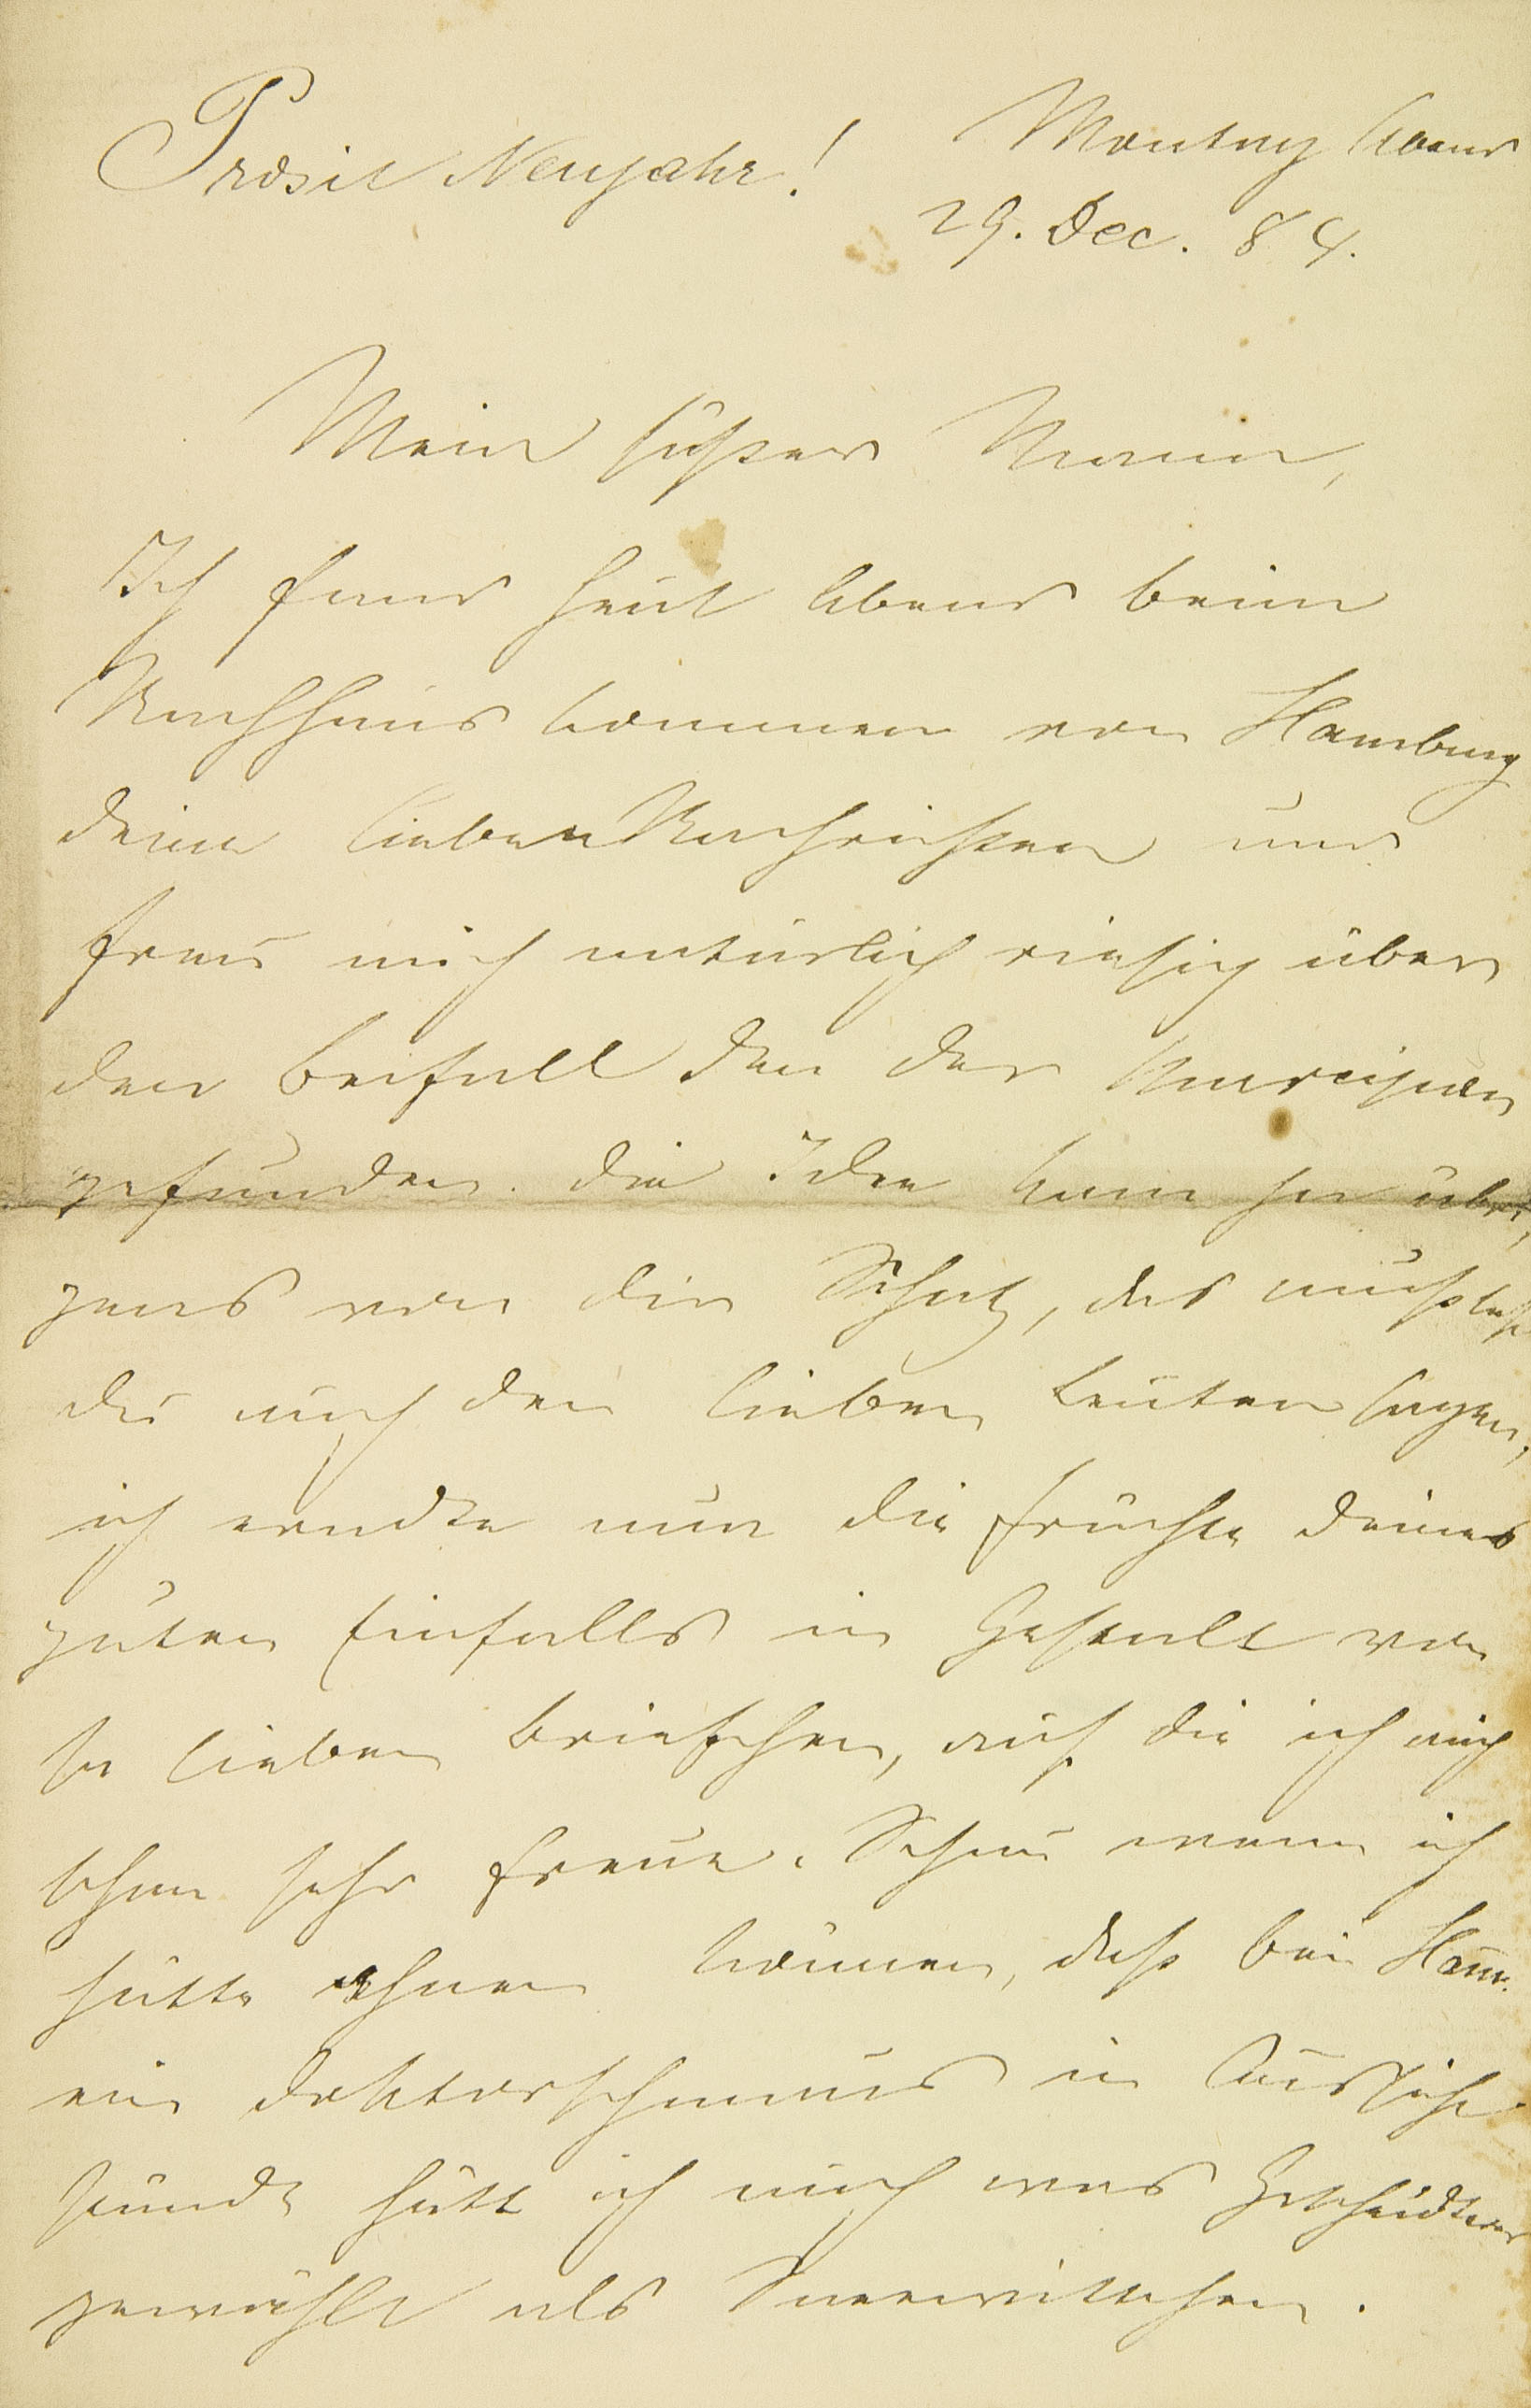 Prosit Neujahr! Montag Abend
29. Dec. 84.
Mein süßer Mann,
Ich fand heut Abend beim
Nachhaus kommen von Hamburg
deine lieben Nachrichten und
freu mich natürlich riesig über
den Beifall den der Marcipan
gefunden. Die Idee kam ja übri,
gens von dir Schatz, das mußtest
du auch den lieben Leuten sagen,
ich erndte nun die Früchte deines
guten Einfalls in Gestalt von
so lieben Briefchen, auf die ich mich
schon sehr freue. Schau wenn ich
hätte ahnen können, daß bei Ham.
ein Dokterschmaus in Aussicht
stünde hätt ich auch was Gescheidteres
gewählt als Sneewittchen.